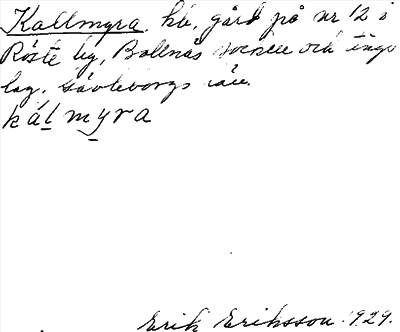 Kallmyra, hb, gård på nr 12 i
Röste by, Bollnäs socken och tings
lag, Gävleborgs län.
kálmyra
Erik Eriksson 1929.